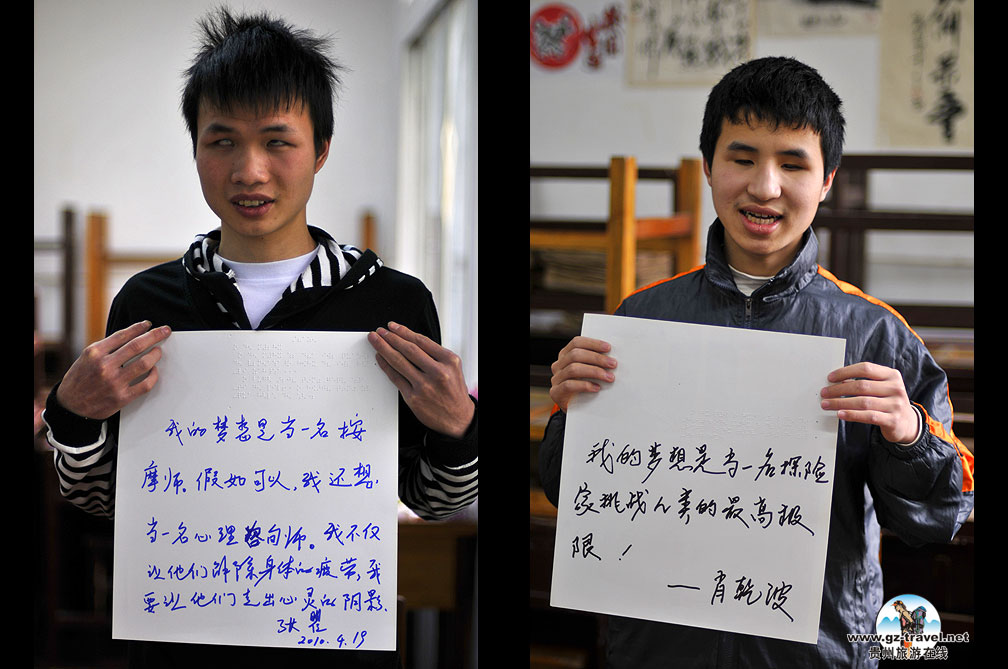 我的梦想是当一名按
摩师。假如可以,我还想
当一名心理咨询师。我不仅
让他们解除身体的疲劳,我
要让他们走出心灵的阴影.
2010.4.19
我的梦想是当一名探险
家挑战人类的最高极
限!
——肖乾波
www.gz-travel.net
贵州旅游在线